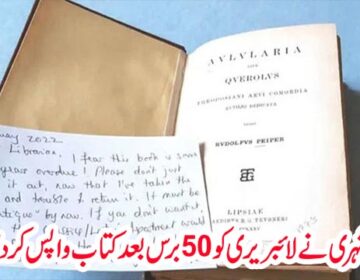 AVLVLARIA
SIVE
QVEROLVS
THEODOSIANI AEVI COMOEDIA
RVTILIO DEDICATA
EDIDIT
RVDOLPVS PEIPER
LIPSIAE
IN AEDIBVS B. G. TEVBNERI
2022
Librarian, I fear this book is some
years overdue! Please don't just
it out, now that I've taken the
and trouble to return it. It must be
by now. If you don't want it,
would
نے لائبریری کو 50 برس بعد کتاب واپس